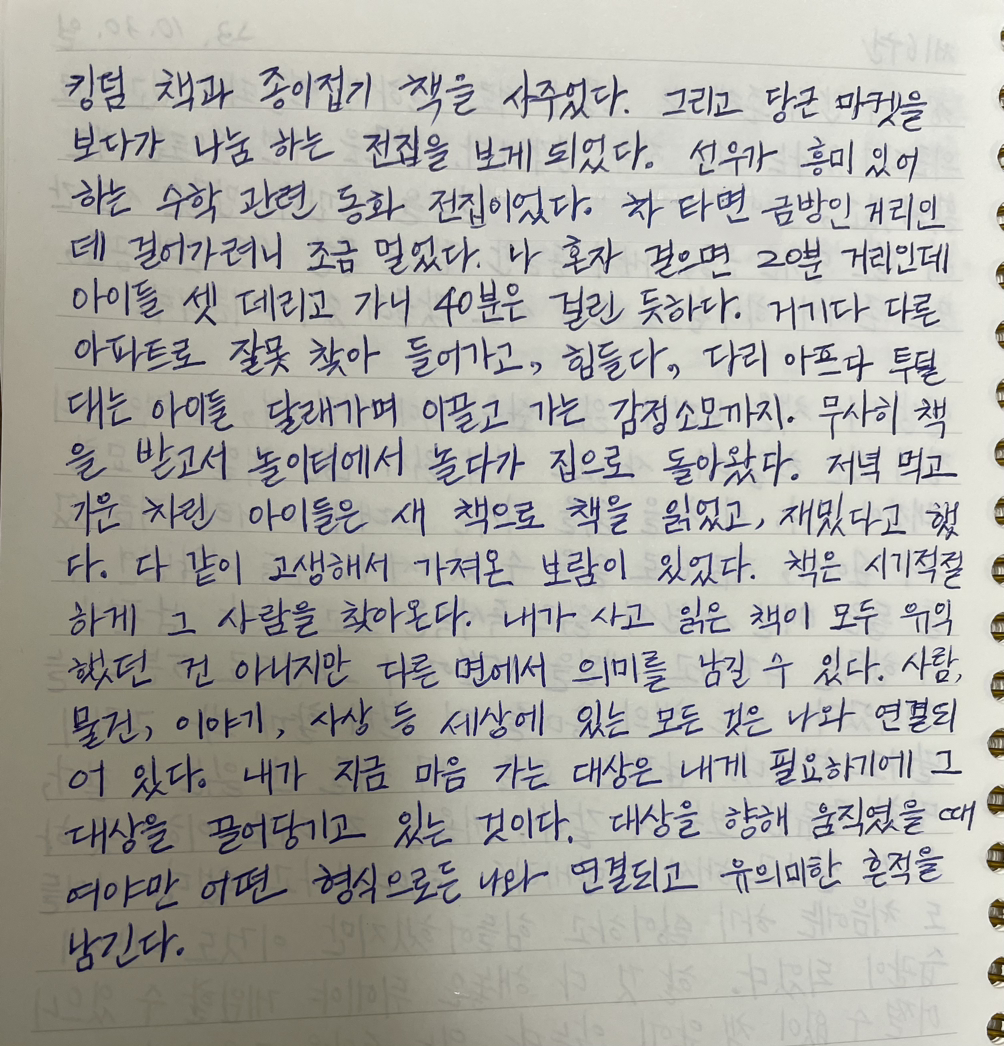 킹덤 책과 종이접기 책을 사주었다. 그리고 당근 마켓을
보다가 나눔 하는 전집을 보게 되었다. 선우가 흥미 있어
하는 수학 관련 동화 전집이었다. 차 타면 금방인 거리인
데 걸어가려니 조금 멀었다. 나 혼자 걸으면 20분 거리인데
아이들 셋 데리고 가니 40분은 걸린 듯하다. 거기다 다른
아파트로 잘못 찾아 들어가고, 힘들다, 다리 아프다 투덜
대는 아이들 달래가며 이끌고 가는 감정소모까지. 무사히 책
을 받고서 놀이터에서 놀다가 집으로 돌아왔다. 저녁 먹고
기운 차린 아이들은 새 책으로 책을 읽었고, 재밌다고 했
다. 다 같이 고생해서 가져온 보람이 있었다. 책은 시기적절
하게 그 사람을 찾아온다. 내가 사고 읽은 책이 모두 유익
했던 건 아니지만 다른 면에서 의미를 남길 수 있다. 사람,
물건, 이야기, 사상 등 세상에 있는 모든 것은 나와 연결되
어 있다. 내가 지금 마음 가는 대상은 내게 필요하기에 그
대상을 끌어당기고 있는 것이다. 대상을 향해 움직였을 때
여야만 어떤 형식으로든 나와 연결되고 유의미한 흔적을
남긴다.